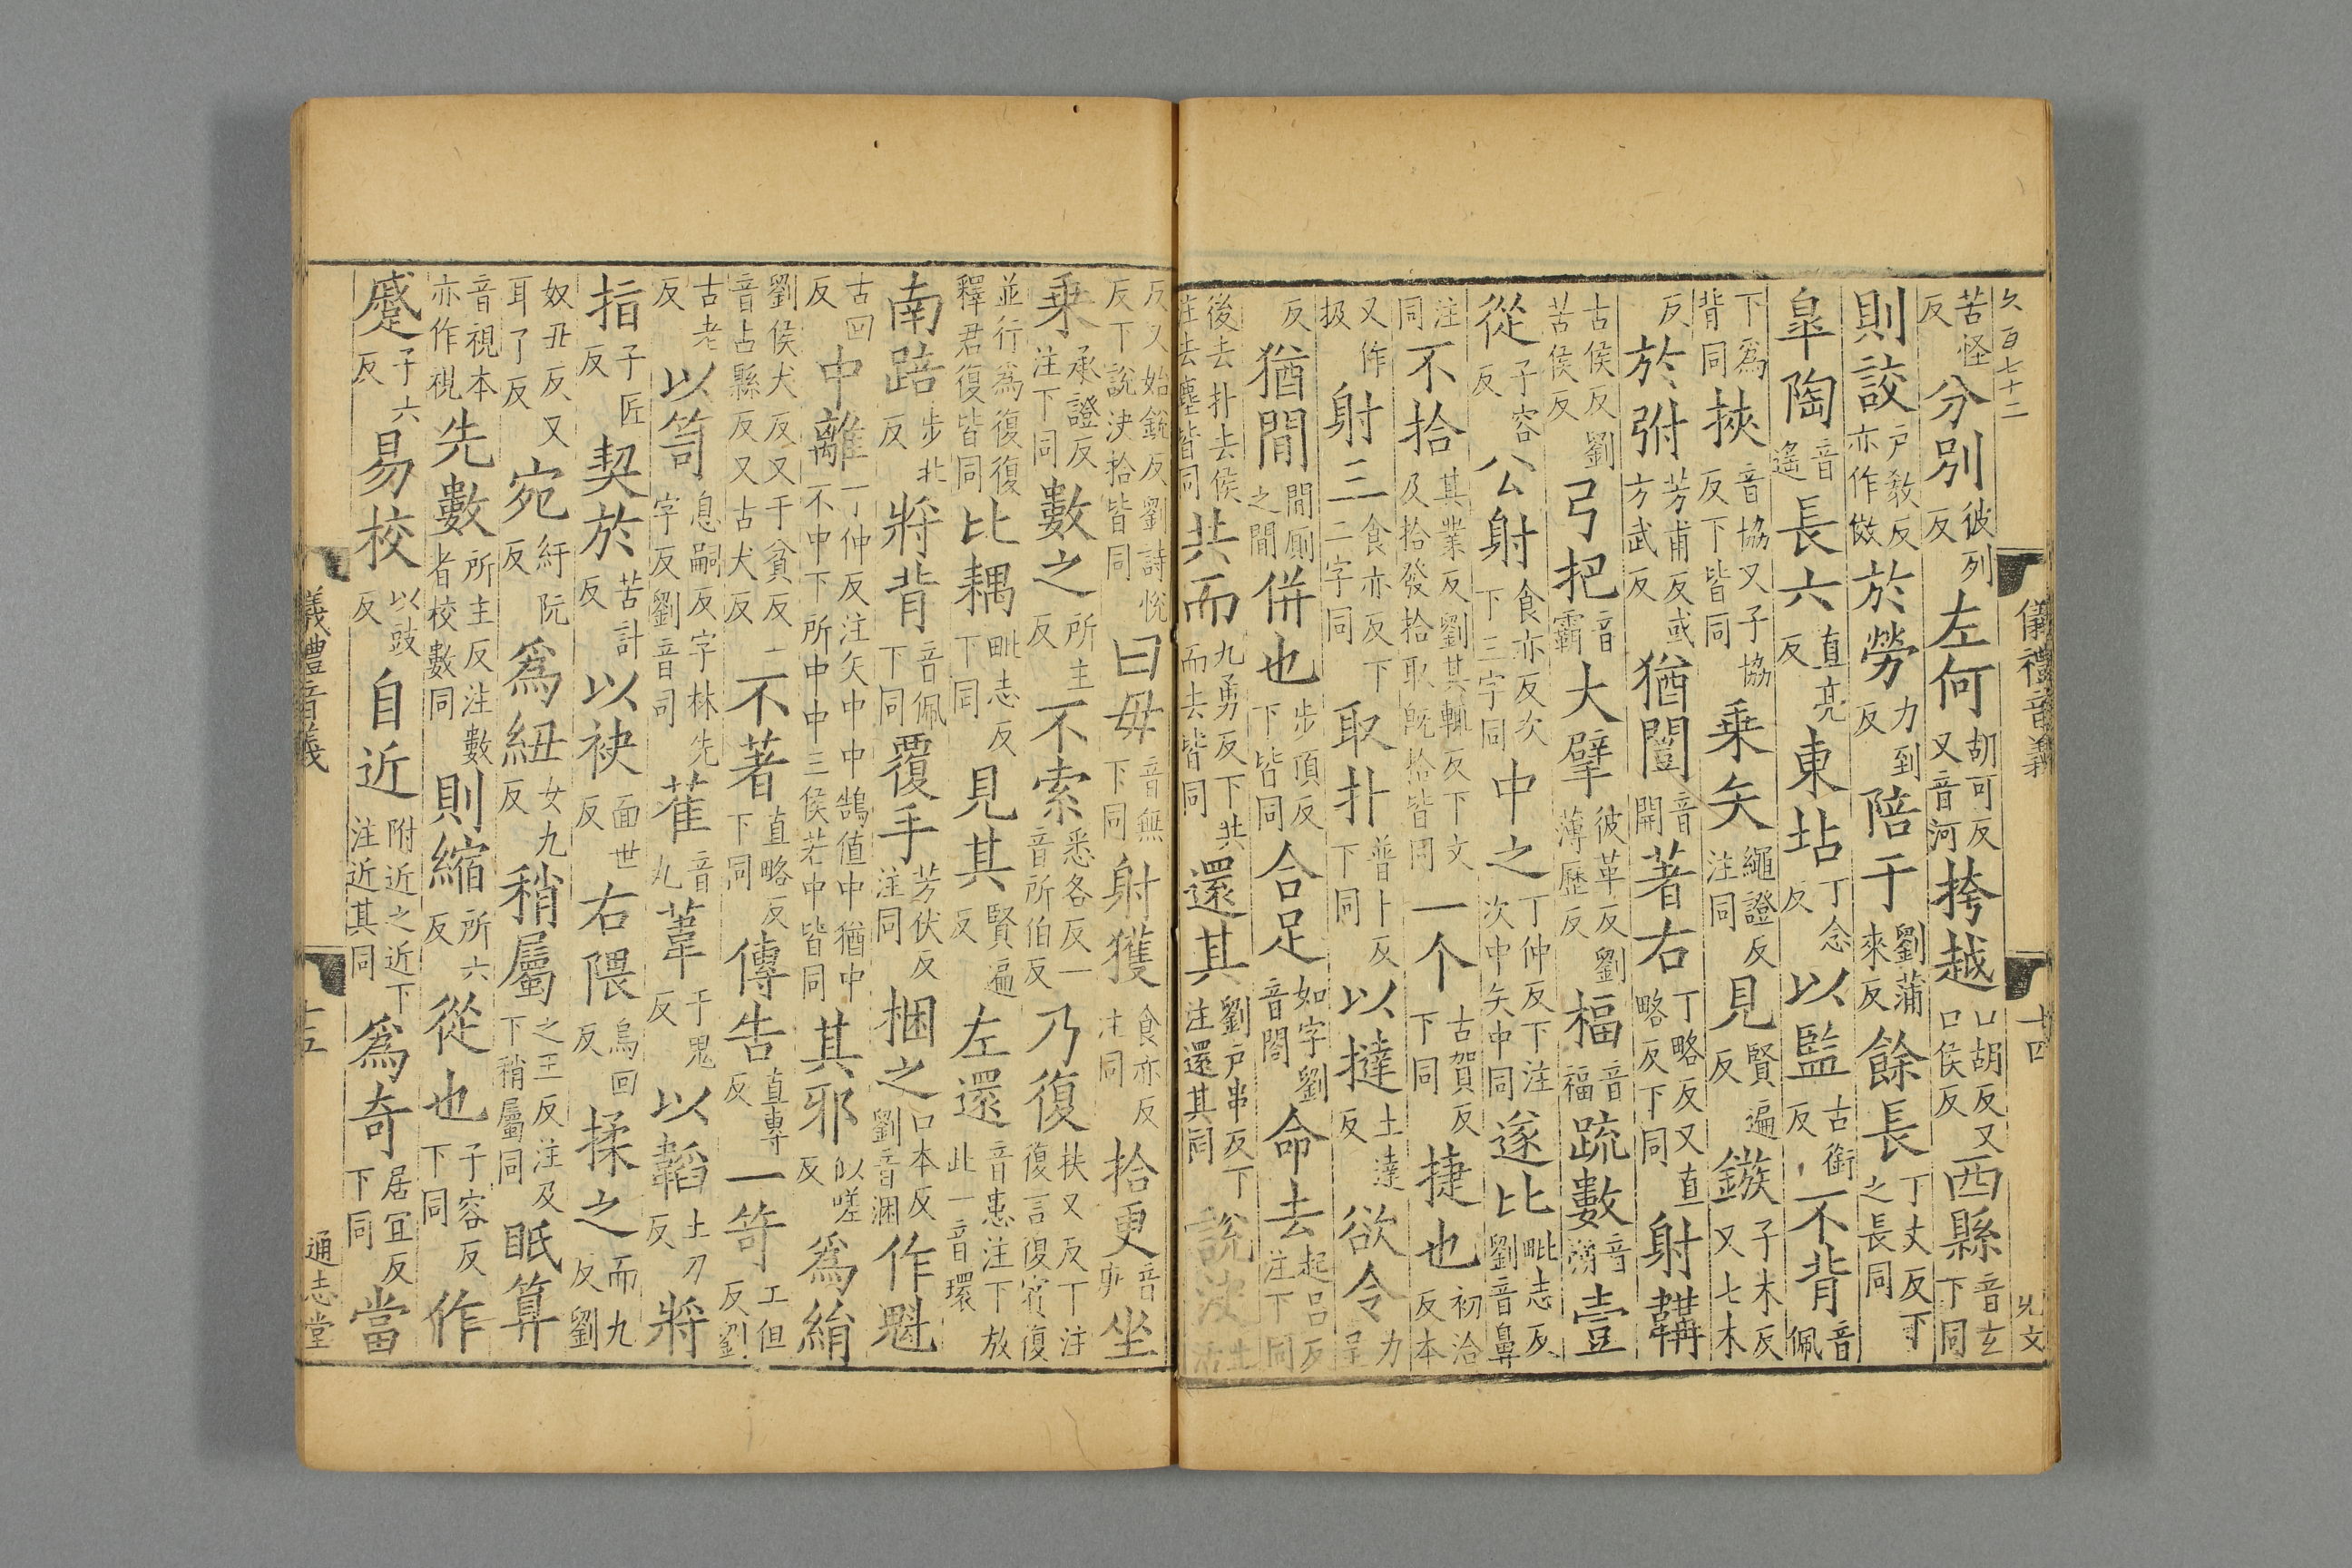 欠百七十二 儀禮音義 十四 尤文
苦怪反 分別彼列反 左何胡可反又音河 挎越口胡反又口侯反 西縣音玄下同
則詨戶教反亦作傚 於勞力到反 陪于劉蒲來反 餘長丁丈反下之長同
臯陶音遙 長六直亮反 東坫丁念反 以監古銜反 不背音佩
下爲背同 挾音協又子協反下皆同 乗矢繩證反注同 見賢遍反 鏃子木反又七木
反 於弣芳甫反或方武反 猶闓音開 著右丁略反又直略反下同 射韝
古侯反劉苦侯反 弓把音霸 大擘彼革反劉薄歷反 福音福 䟽數音朔 壹
從子容反 公射食亦反次下三字同 中之丁仲反下注次中矢中同 遂比毗志反劉音鼻
注同 不拾其業反劉其輒反下文及拾發拾取旣拾皆同 一个古賀反下同 捷也初洽反本
又作扱 射三食亦反下二字同 取扑普卜反下同 以撻土達反 欲令力呈
反 猶間間厠之間 併也步頂反下皆同 合足如字劉音閤 命去起呂反注下同
後去扑去侯注去塵皆同 共而九勇反下共而去皆同 還其劉戶串反下注還其同 說決土活
反又始銳反劉詩悅反下說決拾皆同 曰毋音無下同 射獲食亦反注同 拾更音庚 坐
乗承證反注下同 數之所主反 不索悉各反一音所伯反 乃復扶又反丁注復言復賓復
並行爲復復釋君復皆同 比耦毗志反下同 見其賢遍反 左還音患注下放此一音環
南踣步北反 將背音佩下同 覆手芳伏反注同 梱之口本反劉音淵 作魁
古回反 中離丁仲反注矢中中鵠值中猶中不中下所中中三侯若中皆同 其邪似嗟反 爲絹
劉侯犬反又于貧反一音占縣反又古犬反 不著直略反下同 傳告直專反 一笴工但反劉
古老反 以笥息嗣反字林先字反劉音司 萑音丸 葦于鬼反 以韜土刀反 將
指子匠反 契於苦計反 以袂面世反 右隈烏回反 揉之而九反劉
奴丑反又耳了反 宛紆阮反 爲紐女九反 稍屬之玉反注及下稍屬同 眡算
音視本亦作視 先數所主反注數者校數同 則縮所六反 從也子容反下同 作
蹙子六反 易校以豉反 自近附近之近下注近其同 爲奇居冝反下同 當
儀禮音義 十五 通志堂